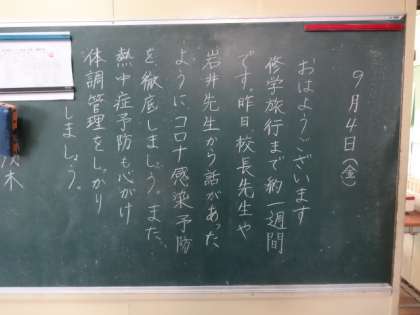 9月4日(金)
おはようございます
修学旅行まで約一週間
です。昨日校長先生や
岩井先生から話があった
ように、コロナ感染予防
を徹底しましょう。また、
熱中症予防も心がけ
体調管理をしっかり
しましょう。